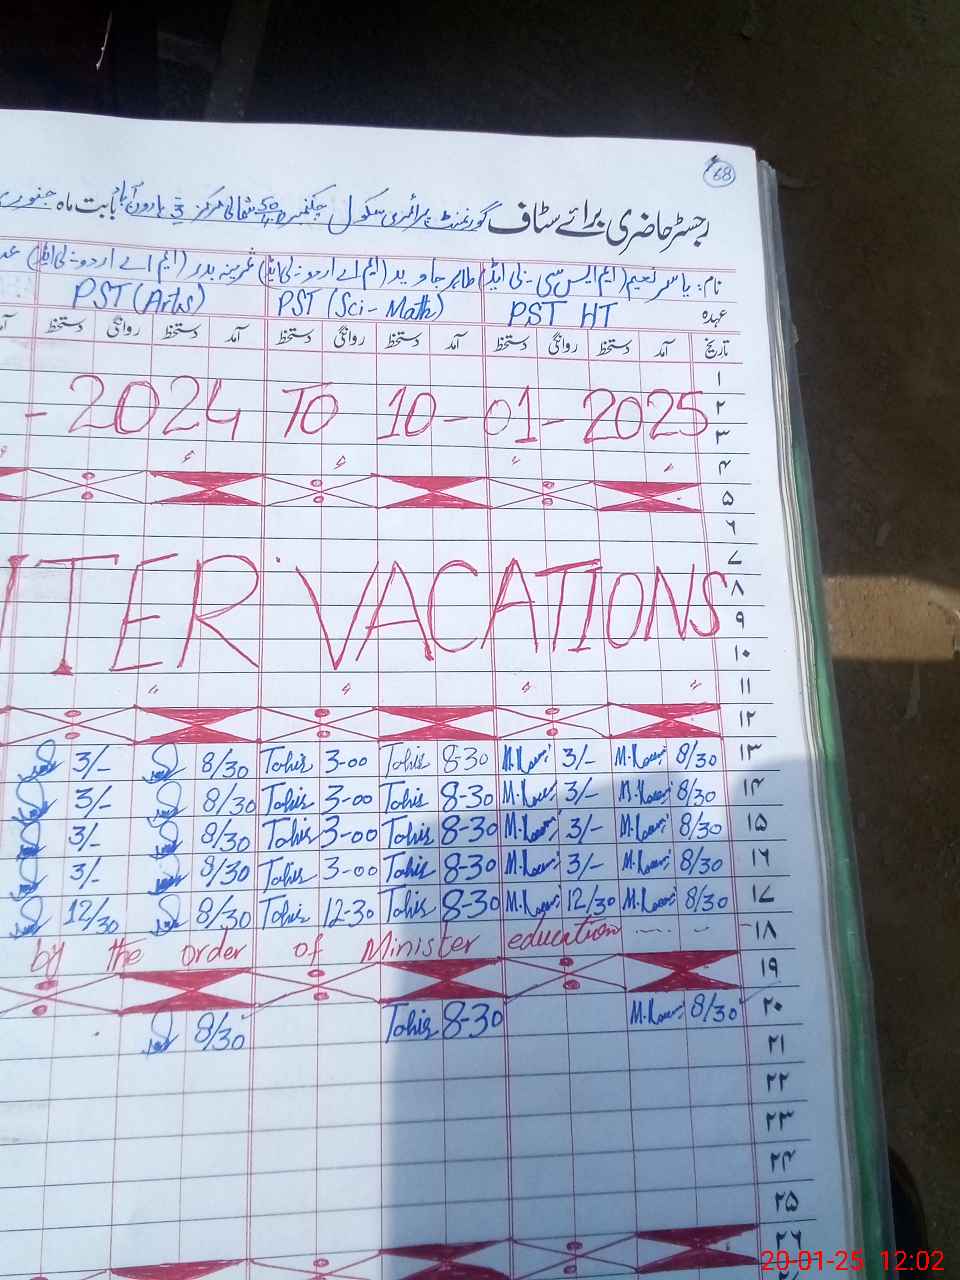 68
رجسٹر حاضری برائے سٹاف گورنمنٹ پرائمری سکول چکنمبر 50 شمالی مرکز 3 ہارون آباد بابت ماہ جنوری
نام: یاسر نعیم (ایم ایس سی۔ بی ایڈ) طاہر جاوید (ایم اے اردو۔ بی ایڈ) بدر (ایم اے اردو۔ بی ایڈ)
عہدہ PST HT PST (Sci - Math) PST (Arts)
تاریخ آمد دستخط روانگی دستخط آمد دستخط روانگی دستخط آمد دستخط روانگی دستخط
۱
- 2024 TO 10-01-2025 ۲
۳
۴
۵
۶
۷
ITER VACATIONS ۸
۹
۱۰
۱۱
۱۲
3/- 8/30 Tahir 3-00 Tahir 8-30 3/- 8/30 ۱۳
3/- 8/30 Tahir 3-00 Tahir 8-30 3/- 8/30 ۱۴
3/- 8/30 Tahir 3-00 Tahir 8-30 3/- 8/30 ۱۵
3/- 8/30 Tahir 3-00 Tahir 8-30 3/- 8/30 ۱۶
12/30 8/30 Tahir 12-30 Tahir 8-30 12/30 8/30 ۱۷
by the order of Minister education ۱۸
۱۹
8/30 Tahir 8-30 8/30 ۲۰
۲۱
۲۲
۲۳
۲۴
۲۵
۲۶
20-01-25 12:02